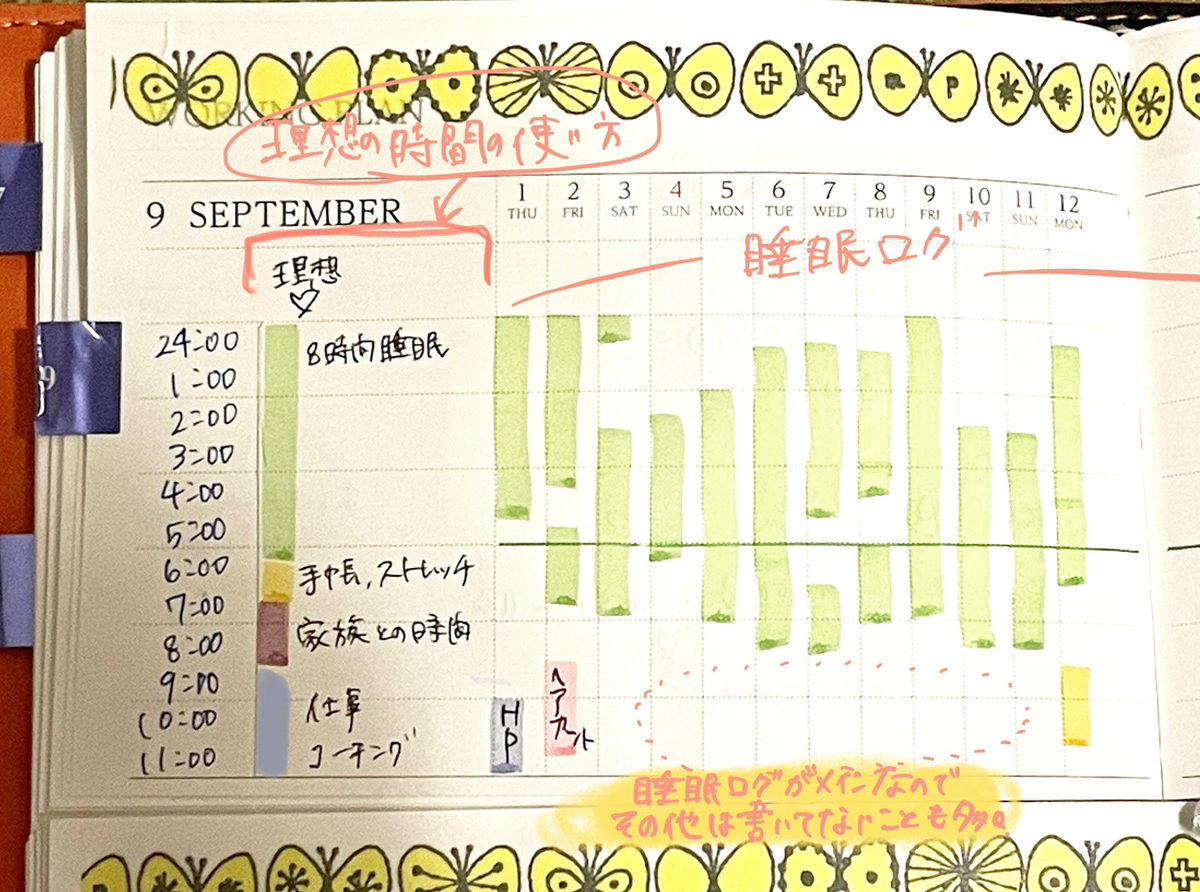 WORKING PLAN
理想の時間の使い方
9 SEPTEMBER
1 2 3 4 5 6 7 8 9 10 11 12
THU FRI SAT SUN MON TUE WED THU FRI SAT SUN MON
睡眠ログ
理想
24:00 8時間睡眠
1:00
2:00
3:00
4:00
5:00
6:00 手帳,ストレッチ
7:00
8:00 家族との時間
9:00
10:00 仕事
11:00 コーチング
HP
ヘアカット
睡眠ログがメインなので
その他は書いてないことも多々。
7
9